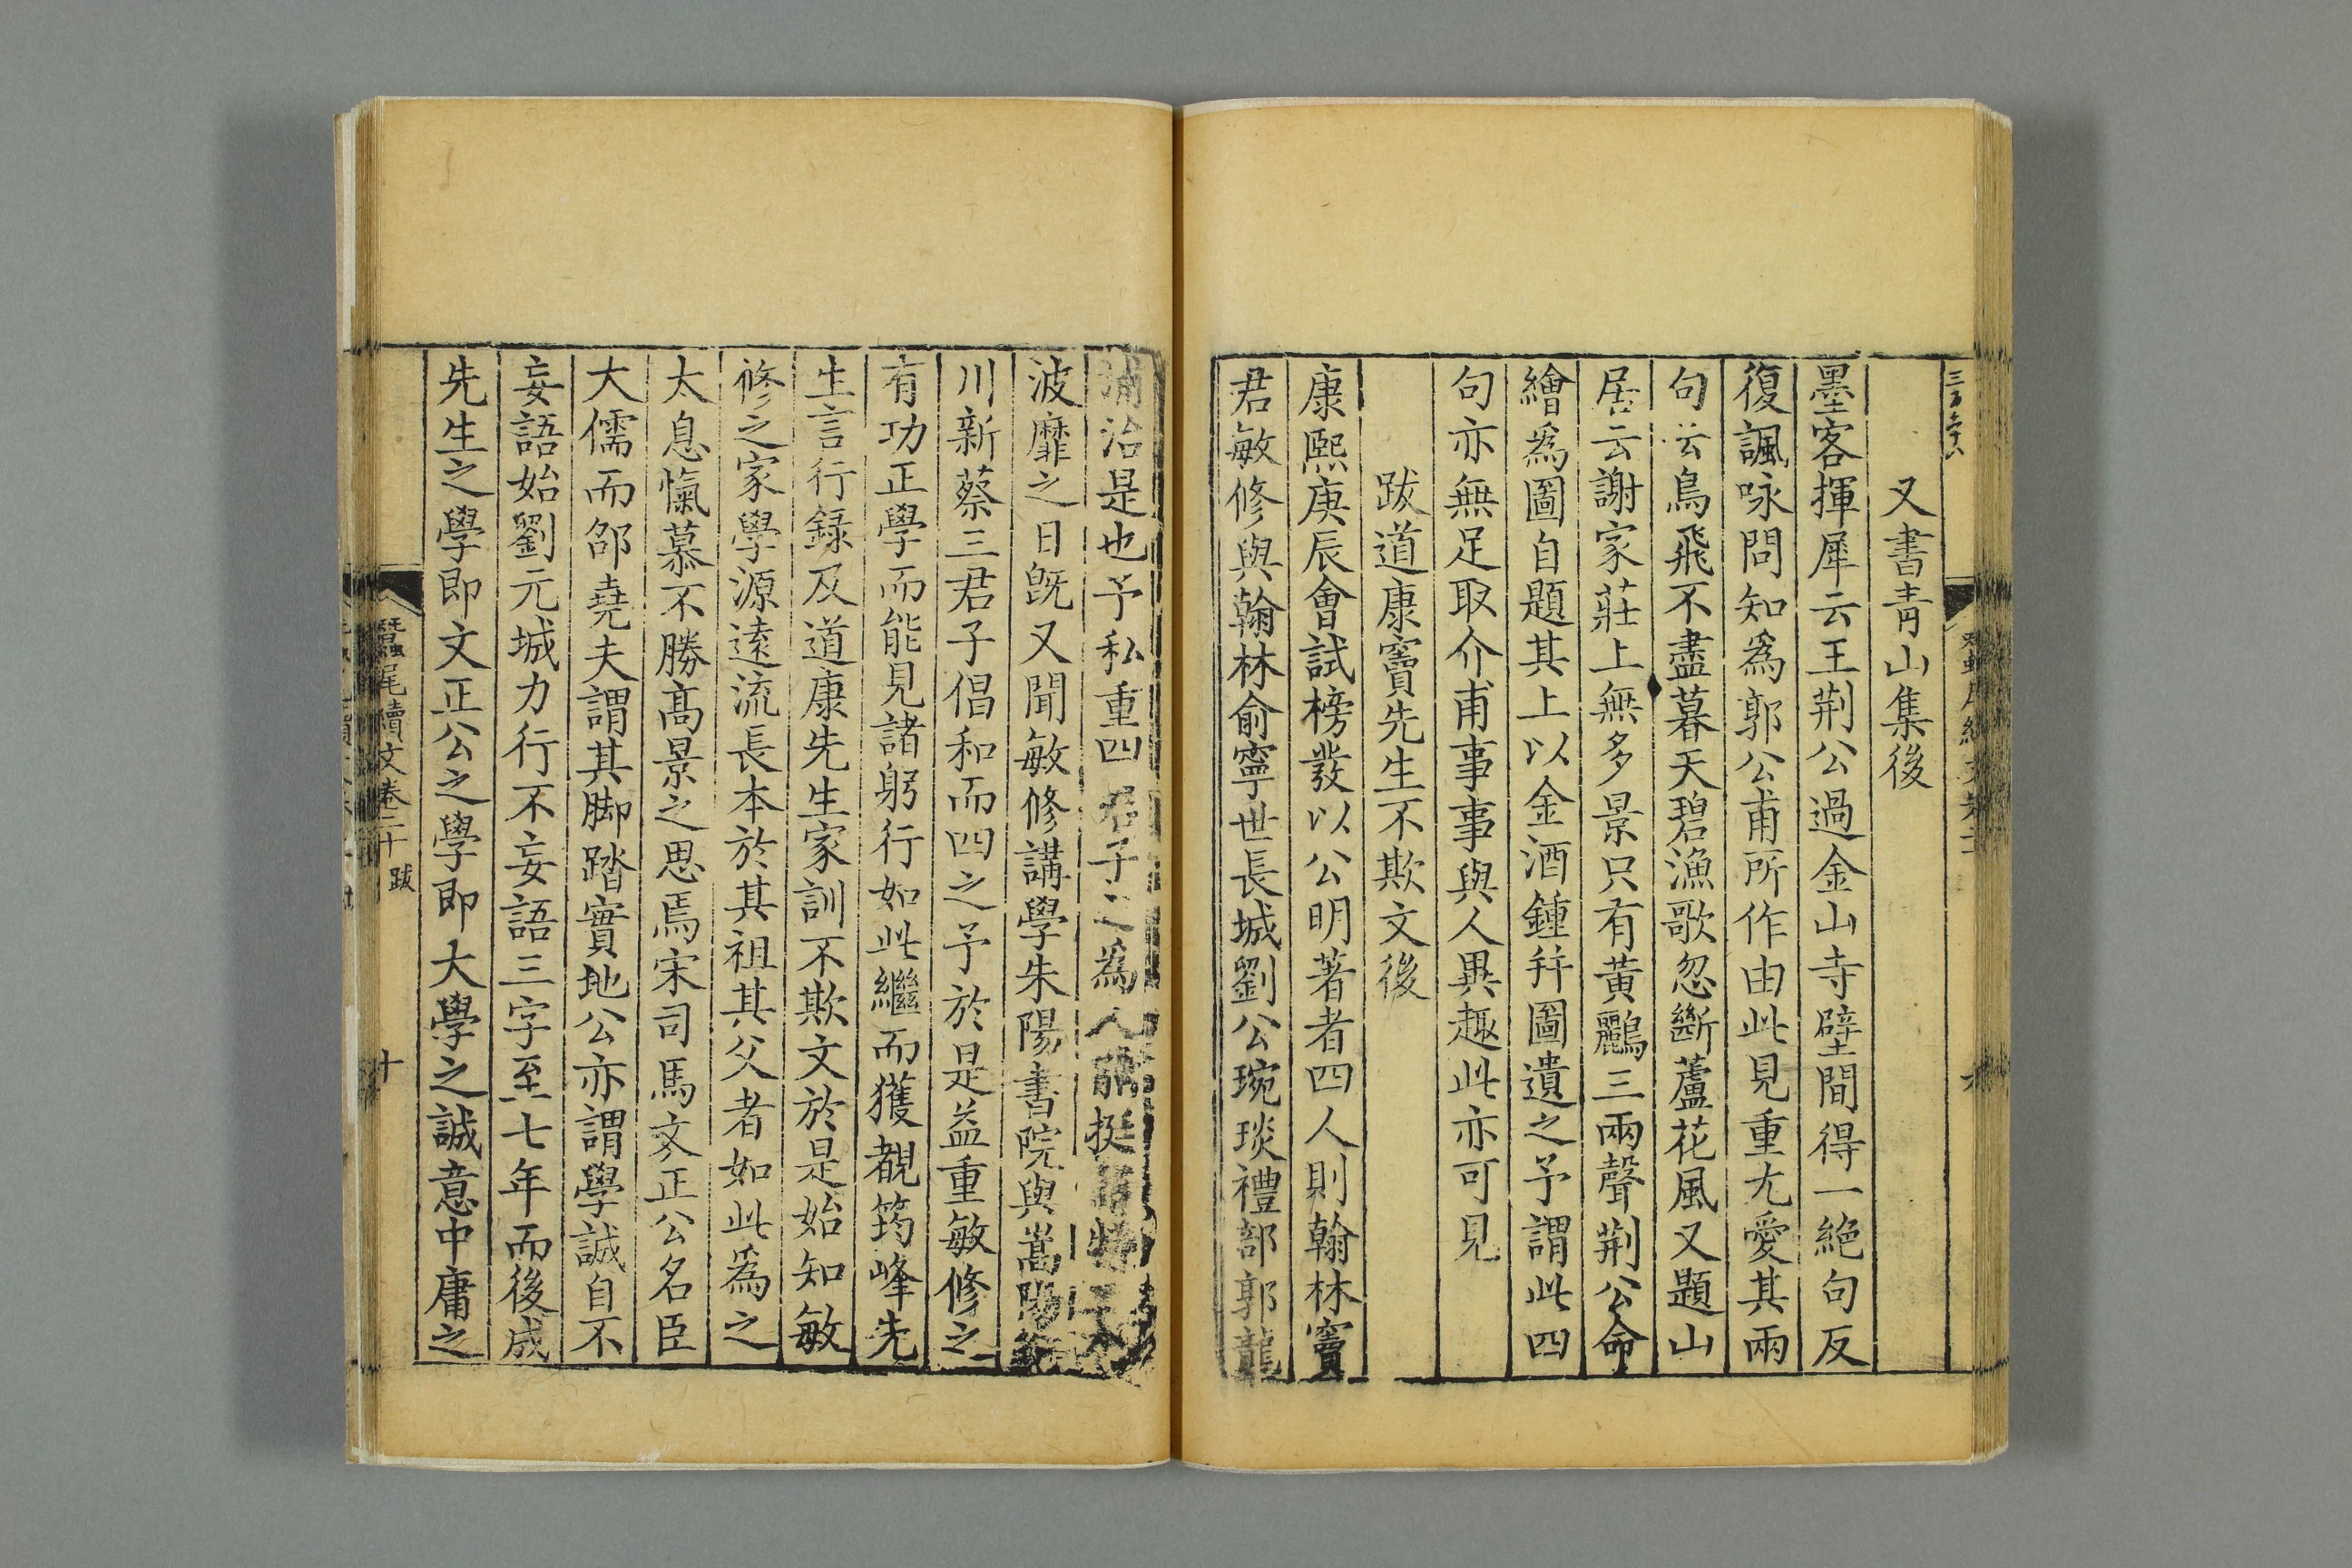 又書青山集後
墨客揮犀云王荆公過金山寺壁間得一絶句反
復諷咏問知爲郭公甫所作由此見重尤愛其兩
句云鳥飛不盡暮天碧漁歌忽斷蘆花風又題山
居云謝家莊上無多景只有黃鸝三兩聲荆公命
繪爲圖自題其上以金酒鍾并圖遺之予謂此四
句亦無足取介甫事事與人異趣此亦可見
跋道康竇先生不欺文後
康熙庚辰會試榜發以公明著者四人則翰林竇
君敏修與翰林俞寧世長城劉公琬琰禮部郭龍
浦治是也予私重四君子之爲人謂挺
波靡之日旣又聞敏修講學朱陽書院與嵩陽
川新蔡三君子倡和而四之予於是益重敏修之
有功正學而能見諸躬行如此繼而獲覩筠峰先
生言行録及道康先生家訓不欺文於是始知敏
修之家學源遠流長本於其祖其父者如此爲之
太息愾慕不勝高景之思焉宋司馬文正公名臣
大儒而邵堯夫謂其脚踏實地公亦謂學誠自不
妄語始劉元城力行不妄語三字至七年而後成
先生之學即文正公之學即大學之誠意中庸之
蠶尾續文卷二十 跋 十